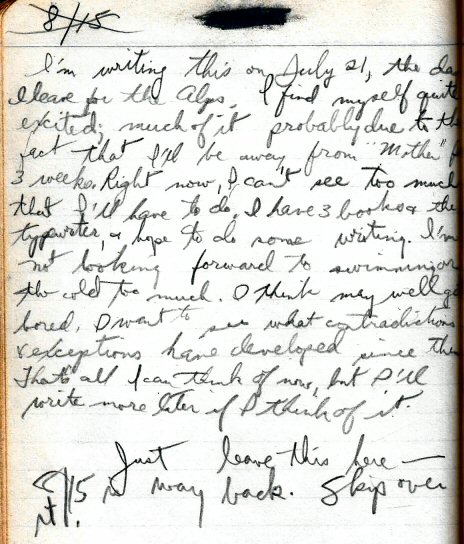 8/15
I'm writing this on July 21, the da
I leave for the Alps. I find myself quite
excited; much of it probably due to th
fact that I'll be away from "Mother" f
3 weeks. Right now, I can't see too much
that I'll have to do. I have 3 books & the
typewriter, & hope to do some writing. I'm
not looking forward to swimming or
the cold too much. I think may well ge
bored. I want to see what contradictions
& exceptions have developed since then
That's all I can think of now, but I'll
write more later if I think of it.
Just leave this here —
8/15 is way back. Skip over
it!